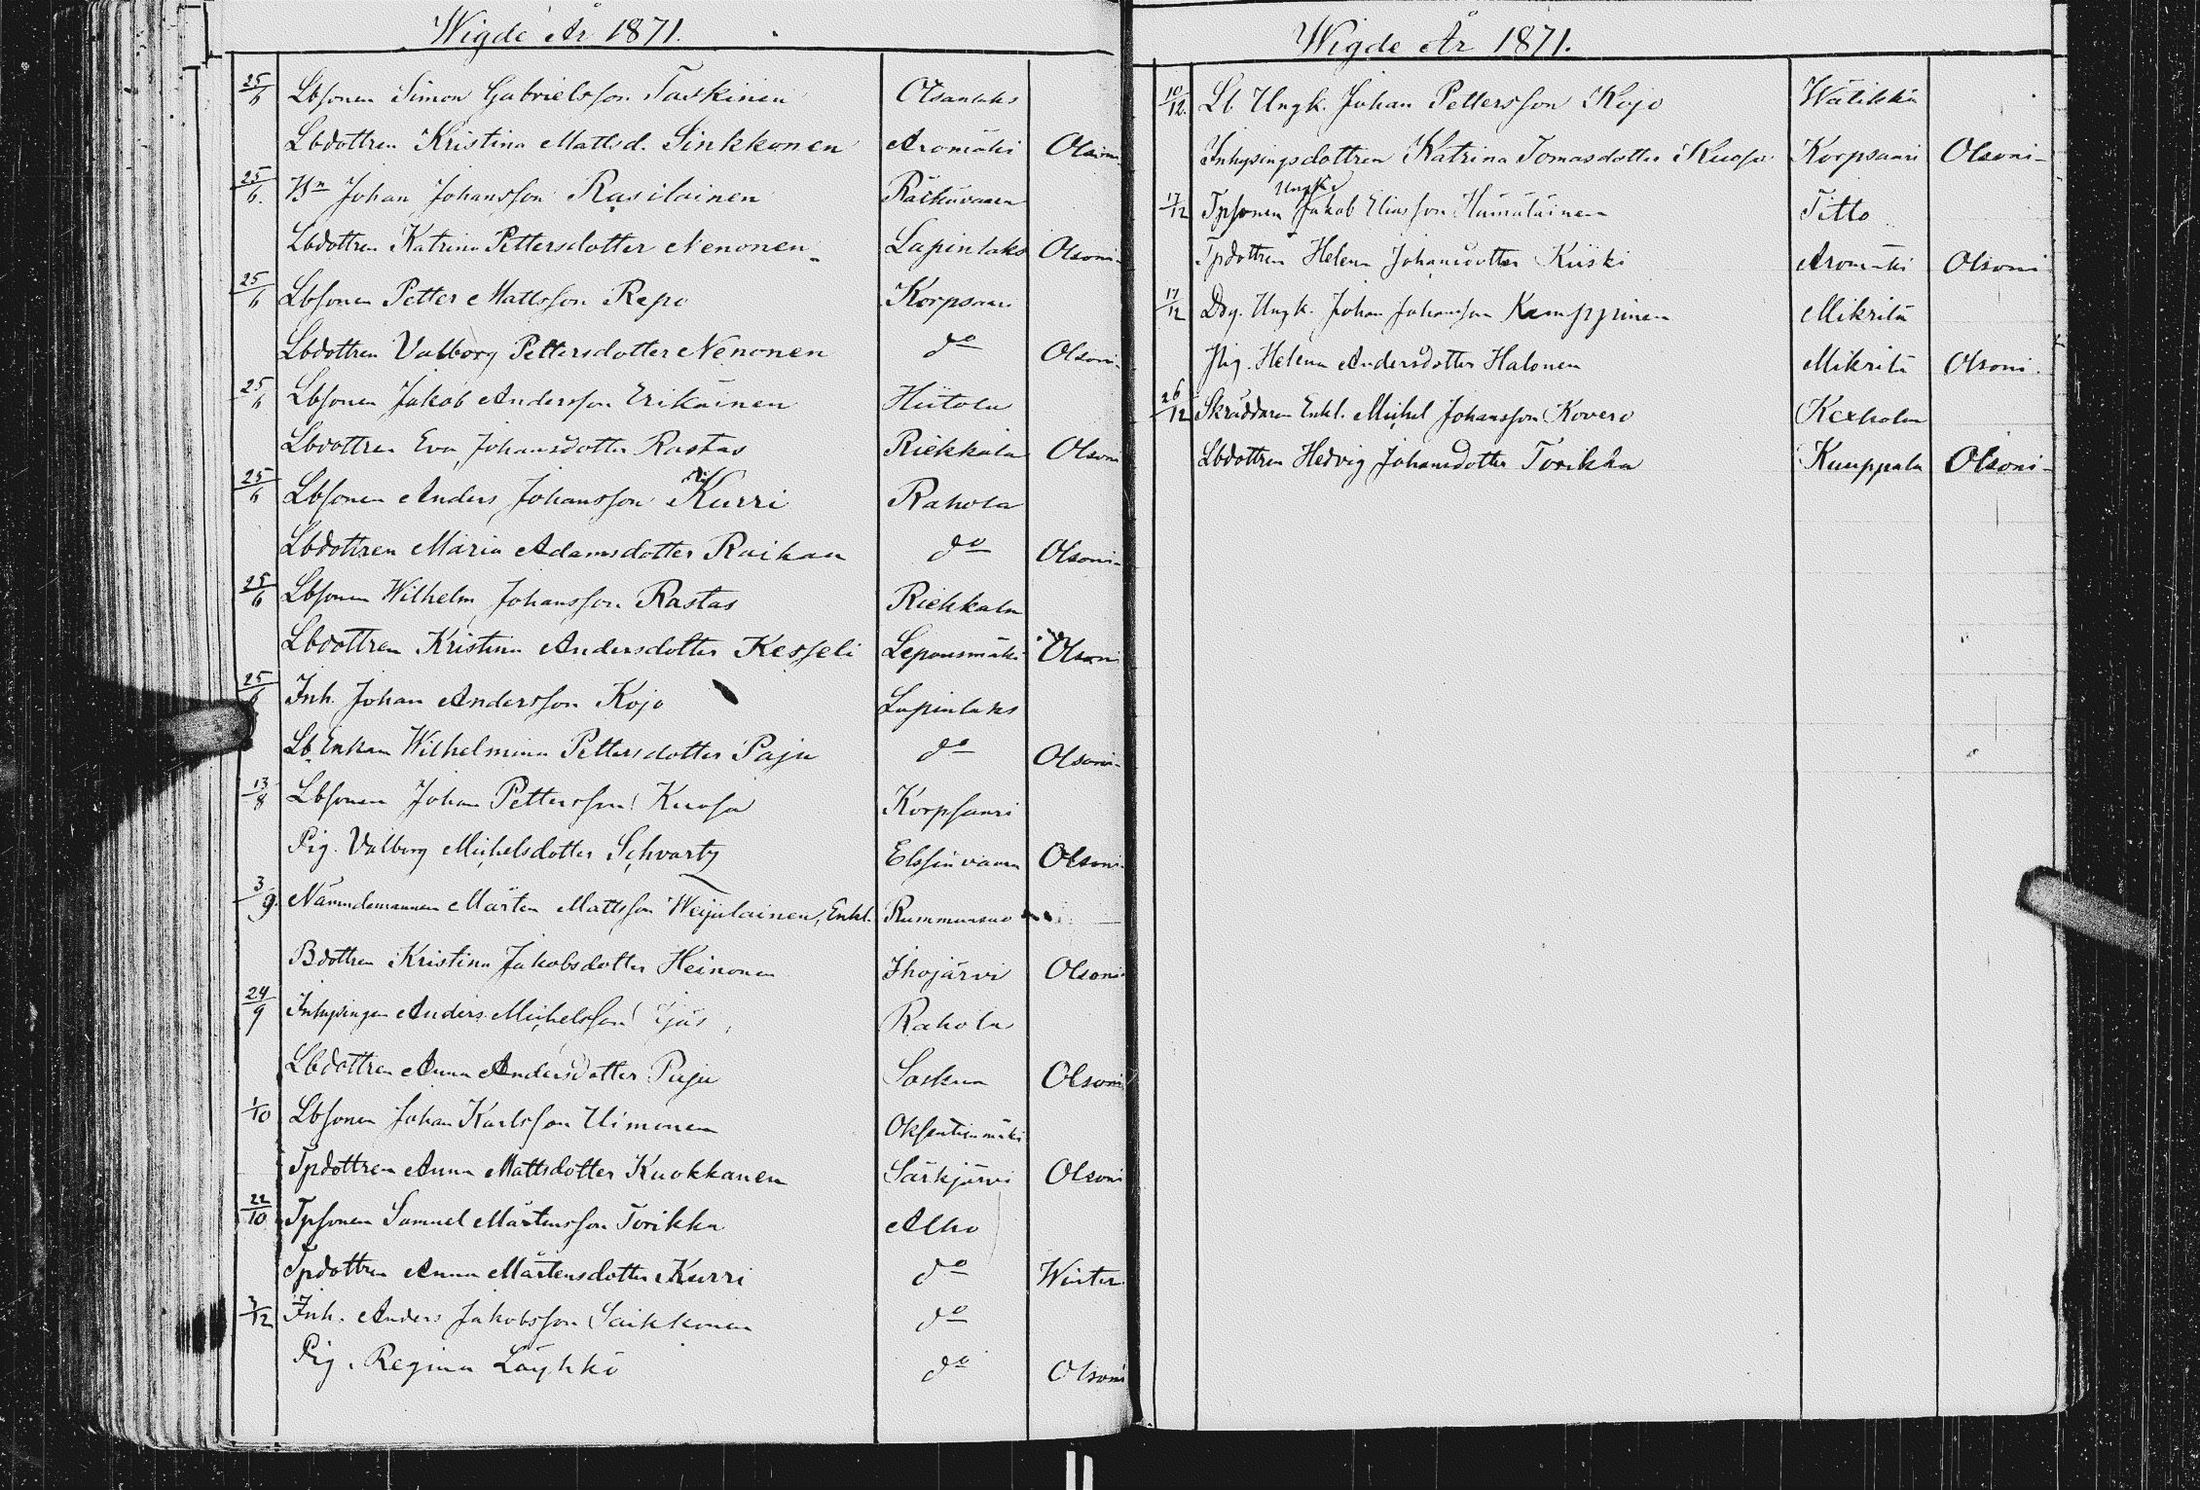 Wigde År 1871.
25/6 Lbsonen Simon Gabrielsson Taskinen Otsanlaks
Lbdottren Kristina Mattsd. Sinkkonen Aromäki Olsoni
25/6. Bn Johan Johansson Rasilainen Räihävaara
Lbdottren Katrina Pettersdotter Nenonen Lapinlaks Olsoni
25/6 Lbsonen Petter Mattsson Repo Korpsaari
Lbdottren Valborg Pettersdotter Nenonen do Olsoni
25/6 Lbsonen Jakob Andersson Erikäinen Hiitola
Lbdottren Eva Johansdotter Rastas Riekkala Olsoni
25/6 Lbsonen Anders Johansson Kurri Rahola
Lbdottren Maria Adamsdotter Raikaa do Olsoni
25/6 Lbsonen Wilhelm Johansson Rastas Riekkala
Lbdottren Kristina Andersdotter Kesseli Leponsmäki Olsoni
25/6 Inh. Johan Andersson Kojo Lapinlaks
Lb. Enkan Wilhelmina Pettersdotter Paju do Olsoni
13/8 Lbsonen Johan Pettersson Kuosa Korpsaari
Pig. Valborg Michelsdotter Schvartz Elssinvaara Olsoni
3/9. Nämndemannen Mårten Mattsson Weijalainen, Enkl. Rummunsuo
Bdottren Kristina Jakobsdotter Heinonen Ihojärvi Olsoni
24/9 Inhysingen Anders Michelsson Ijäs Rahola
Lbdottren Anna Andersdotter Paju Saskua Olsoni
1/10 Lbsonen Johan Karlsson Uimonen Oksentienmäki
Tpdottren Anna Mattsdotter Kuokkanen Särkjärvi Olsoni
22/10 Tpsonen Samuel Mårtensson Torikka Alho
Tpdottren Anna Mårtensdotter Kurri do Winter
/12 Inh. Anders Jakobsson Saikkonen do
Pig. Regina Löyhkö do Olsoni
Wigde År 1871.
10/12. Lb. Ungk. Johan Pettersson Kojo Wätikkä
Inhysingsdottren Katrina Tomasdotter Kuosa Korpsaari Olsoni
Ungk.
17/12 Tpsonen Jakob Eliasson Hämäläinen Titto
Tpdottren Helena Johansdotter Kiiski Aromäki Olsoni
17/12 Drg. Ungk. Johan Johansson Kemppinen Mikrilä
Pig. Helena Andersdotter Halonen Mikrilä Olsoni
26/12 Skräddaren Enkl. Michel Johansson Kovero Kexholm
Lbdottren Hedvig Johansdotter Torikka Kuuppala Olsoni